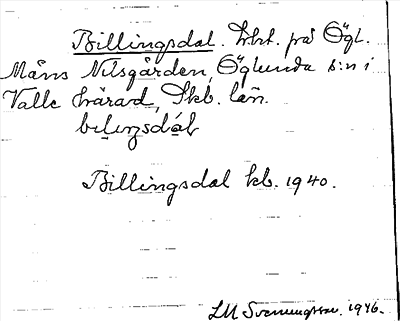 Billingsdal. Lht. på Ögl.
Måns Nilsgården, Öglunda s:n i
Valle härad, Skb. län.
Billingsdal kb. 1940.
LM Svenungsson. 1946.